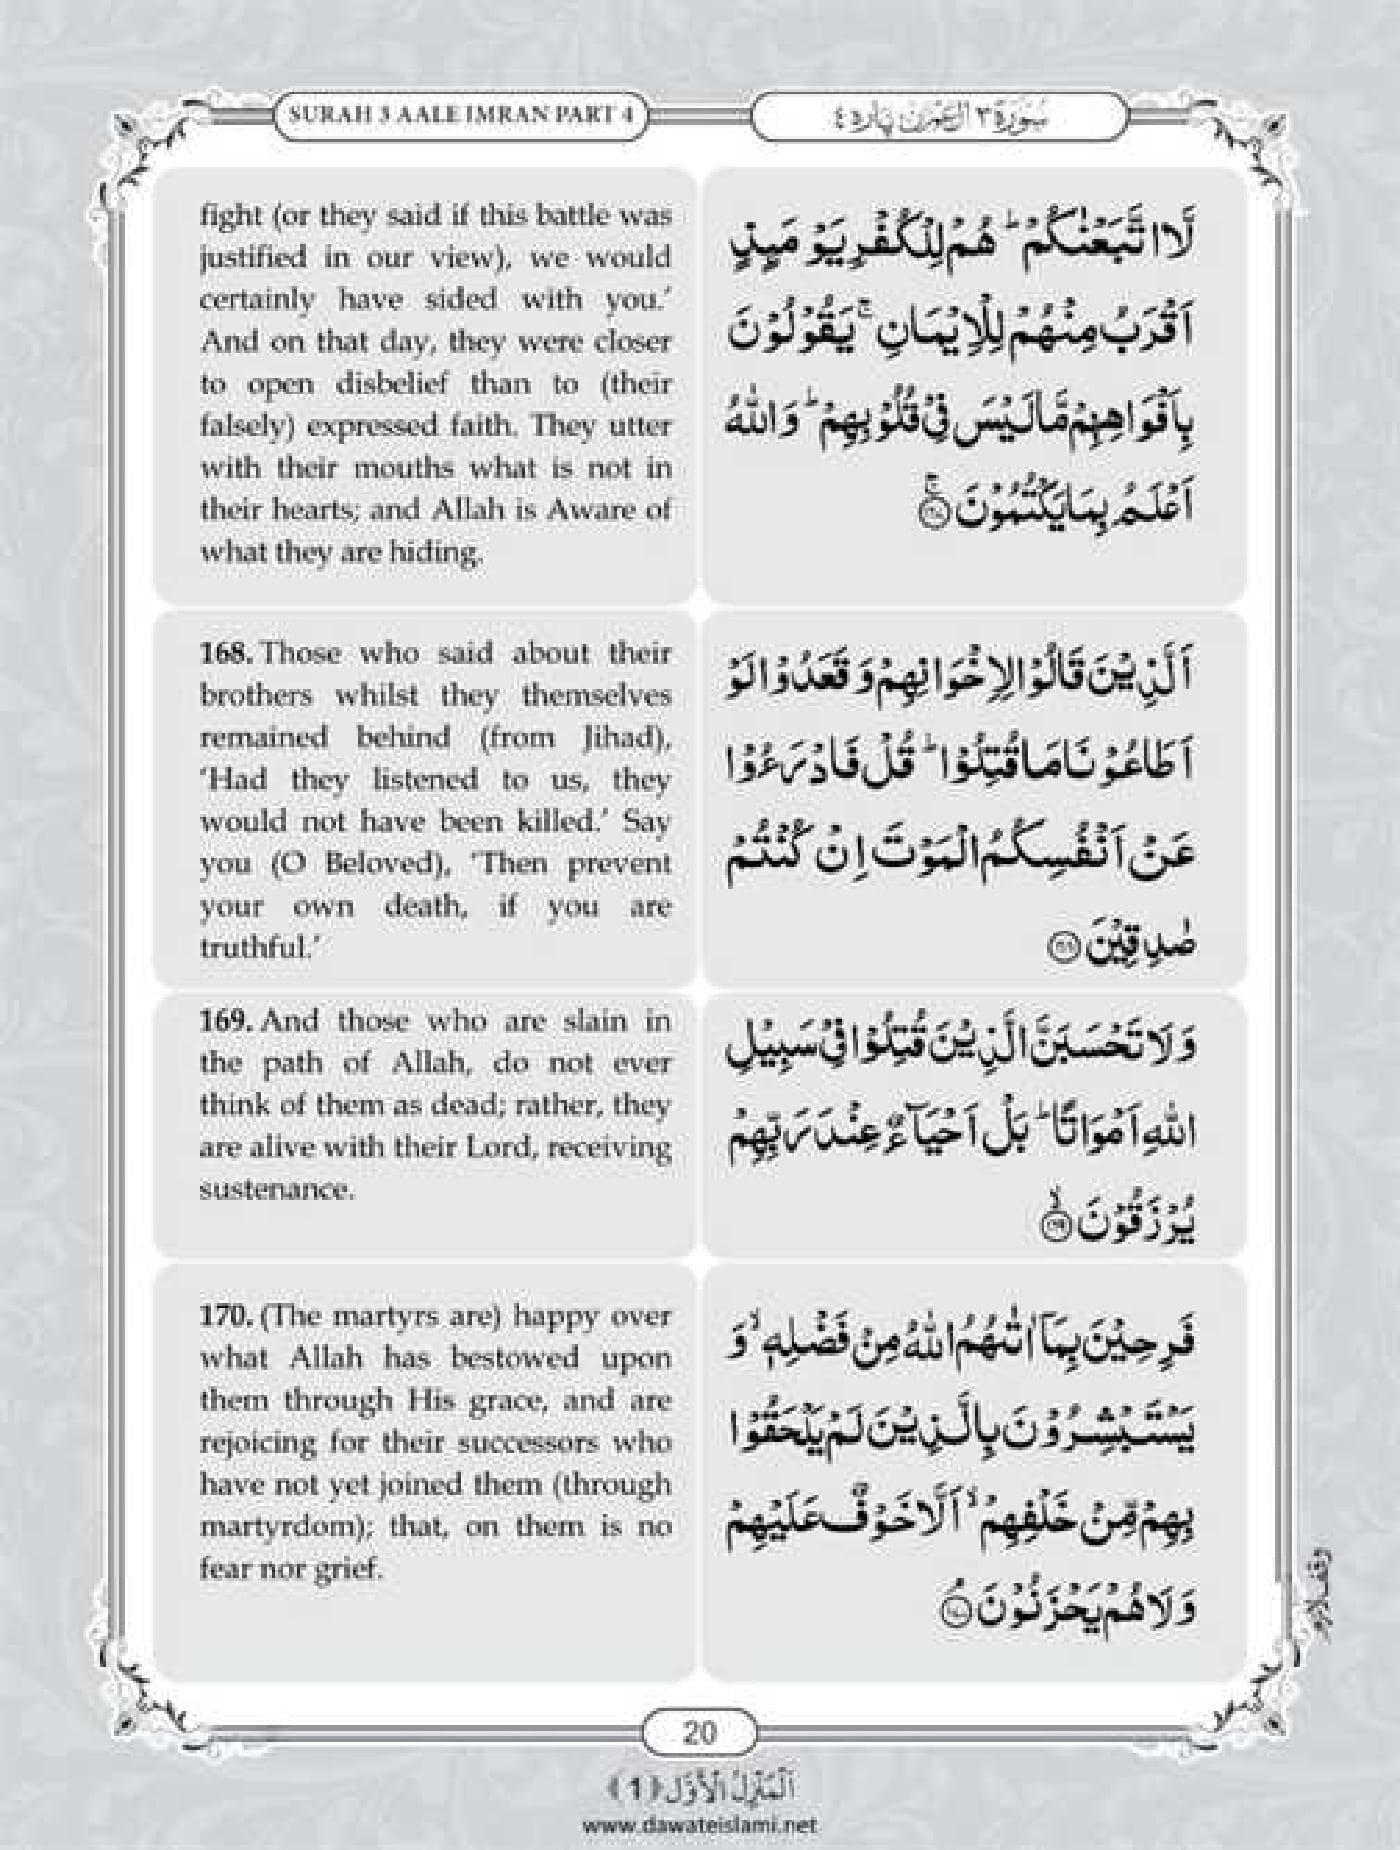 SURAH 3 AALE IMRAN PART 4
سُوْرَة ٣ اٰلِ عِمْرٰن، پاره ٤
fight (or they said if this battle was
justified in our view), we would
certainly have sided with you.’
And on that day, they were closer
to open disbelief than to (their
falsely) expressed faith. They utter
with their mouths what is not in
their hearts; and Allah is Aware of
what they are hiding.
لَّا اتَّبَعْنٰكُمْ ؕ هُمْ لِلْكُفْرِ یَوْمَىِٕذٍ
اَقْرَبُ مِنْهُمْ لِلْاِیْمَانِ ۚ یَقُوْلُوْنَ
بِاَفْوَاهِهِمْ مَّا لَیْسَ فِیْ قُلُوْبِهِمْ ؕ وَاللّٰهُ
اَعْلَمُ بِمَا یَكْتُمُوْنَ ۚ﴿۱۶۷﴾
168. Those who said about their
brothers whilst they themselves
remained behind (from Jihad),
‘Had they listened to us, they
would not have been killed.’ Say
you (O Beloved), ‘Then prevent
your own death, if you are
truthful.’
اَلَّذِیْنَ قَالُوْا لِاِخْوَانِهِمْ وَقَعَدُوْا لَوْ
اَطَاعُوْنَا مَا قُتِلُوْا ؕ قُلْ فَادْرَءُوْا
عَنْ اَنْفُسِكُمُ الْمَوْتَ اِنْ كُنْتُمْ
صٰدِقِیْنَ ﴿۱۶۸﴾
169. And those who are slain in
the path of Allah, do not ever
think of them as dead; rather, they
are alive with their Lord, receiving
sustenance.
وَلَا تَحْسَبَنَّ الَّذِیْنَ قُتِلُوْا فِیْ سَبِیْلِ
اللّٰهِ اَمْوَاتًا ؕ بَلْ اَحْیَآءٌ عِنْدَ رَبِّهِمْ
یُرْزَقُوْنَ ۙ﴿۱۶۹﴾
170. (The martyrs are) happy over
what Allah has bestowed upon
them through His grace, and are
rejoicing for their successors who
have not yet joined them (through
martyrdom); that, on them is no
fear nor grief.
فَرِحِیْنَ بِمَاۤ اٰتٰىهُمُ اللّٰهُ مِنْ فَضْلِهٖ ۙ وَ
یَسْتَبْشِرُوْنَ بِالَّذِیْنَ لَمْ یَلْحَقُوْا
بِهِمْ مِّنْ خَلْفِهِمْ ۙ اَلَّا خَوْفٌ عَلَیْهِمْ
وَلَا هُمْ یَحْزَنُوْنَ ۘ﴿۱۷۰﴾
وقف لازم
20
اَلْمَنْزِلُ الْاَوَّل (1)
www.dawateislami.net